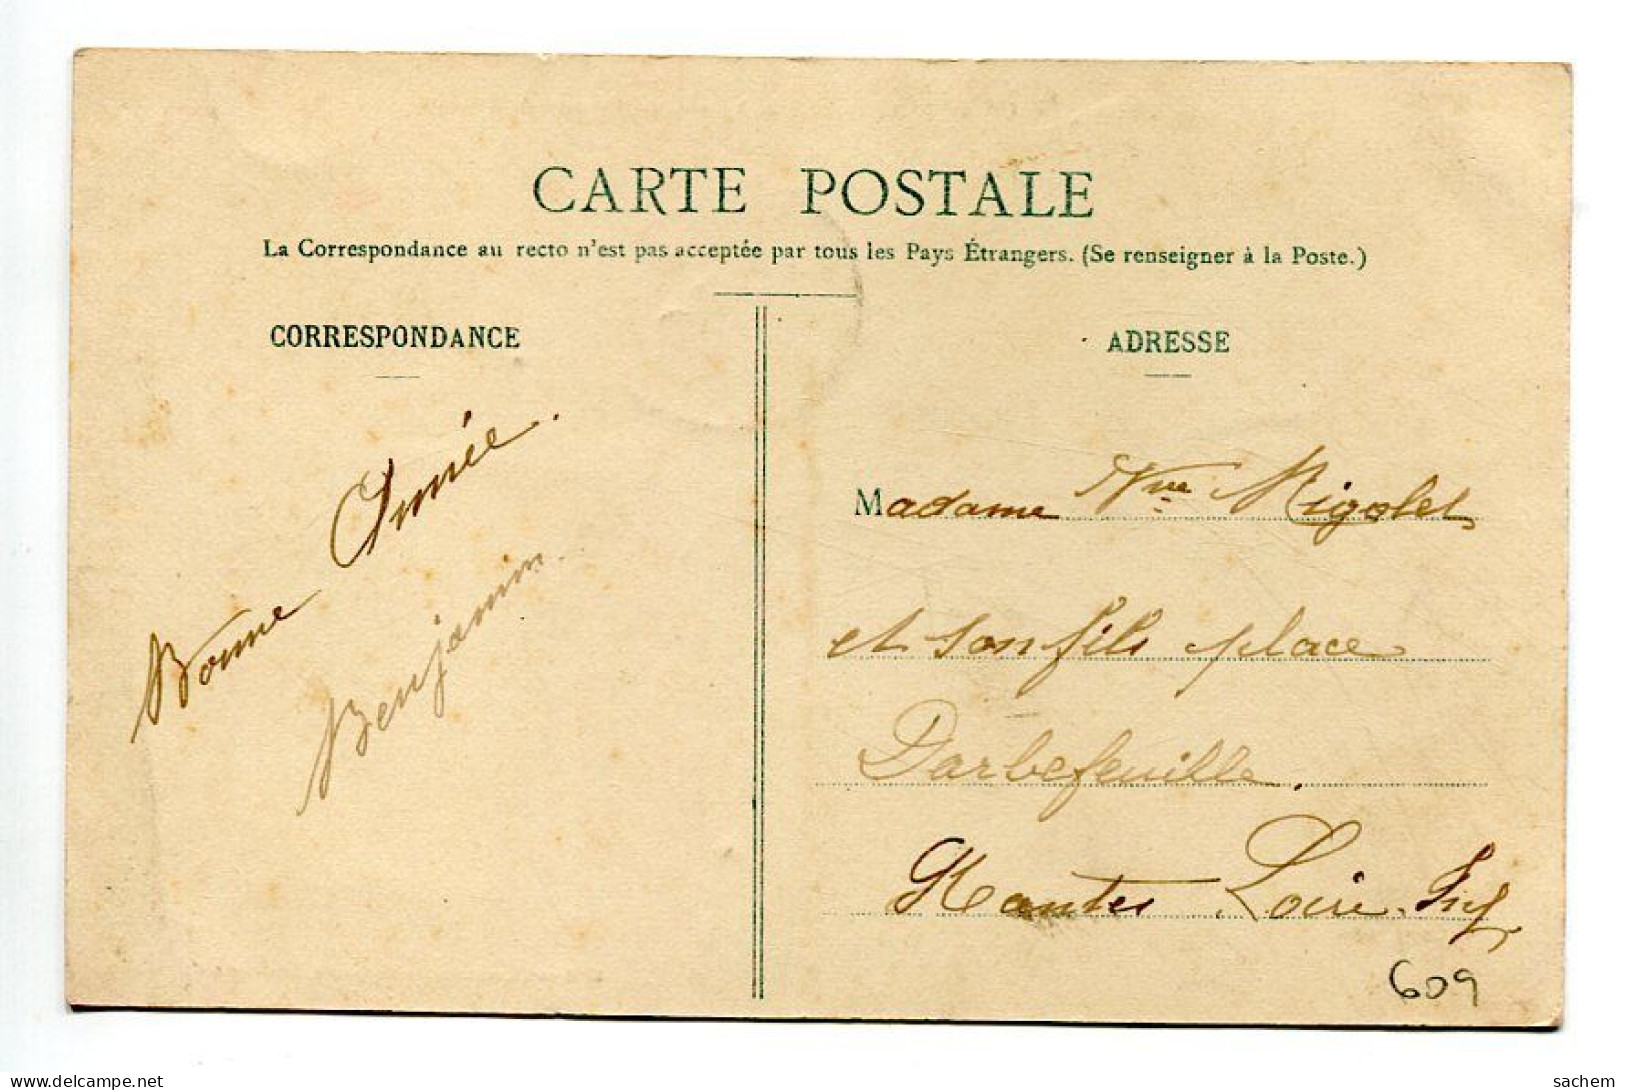 CARTE POSTALE
La Correspondance au recto n'est pas acceptée par tous les Pays Étrangers. (Se renseigner à la Poste.)
CORRESPONDANCE
Bonne Année.
Benjamin.
ADRESSE
Madame Vve Rigolet
et son fils place
Darbefeuille.
Nantes Loire. Inf
609
delcampe.net
sachem